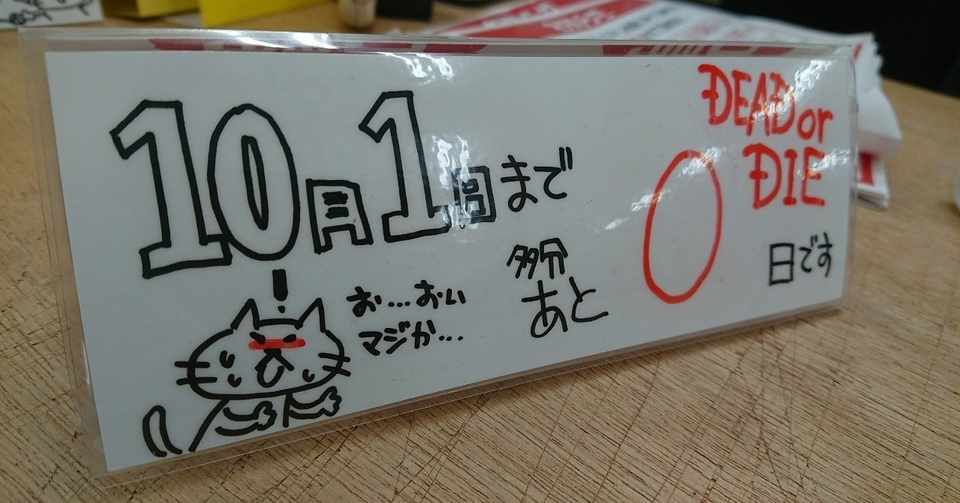 10月1日まで
多分
あと
0
日です
DEAD or
DIE
!
お…おい
マジか…